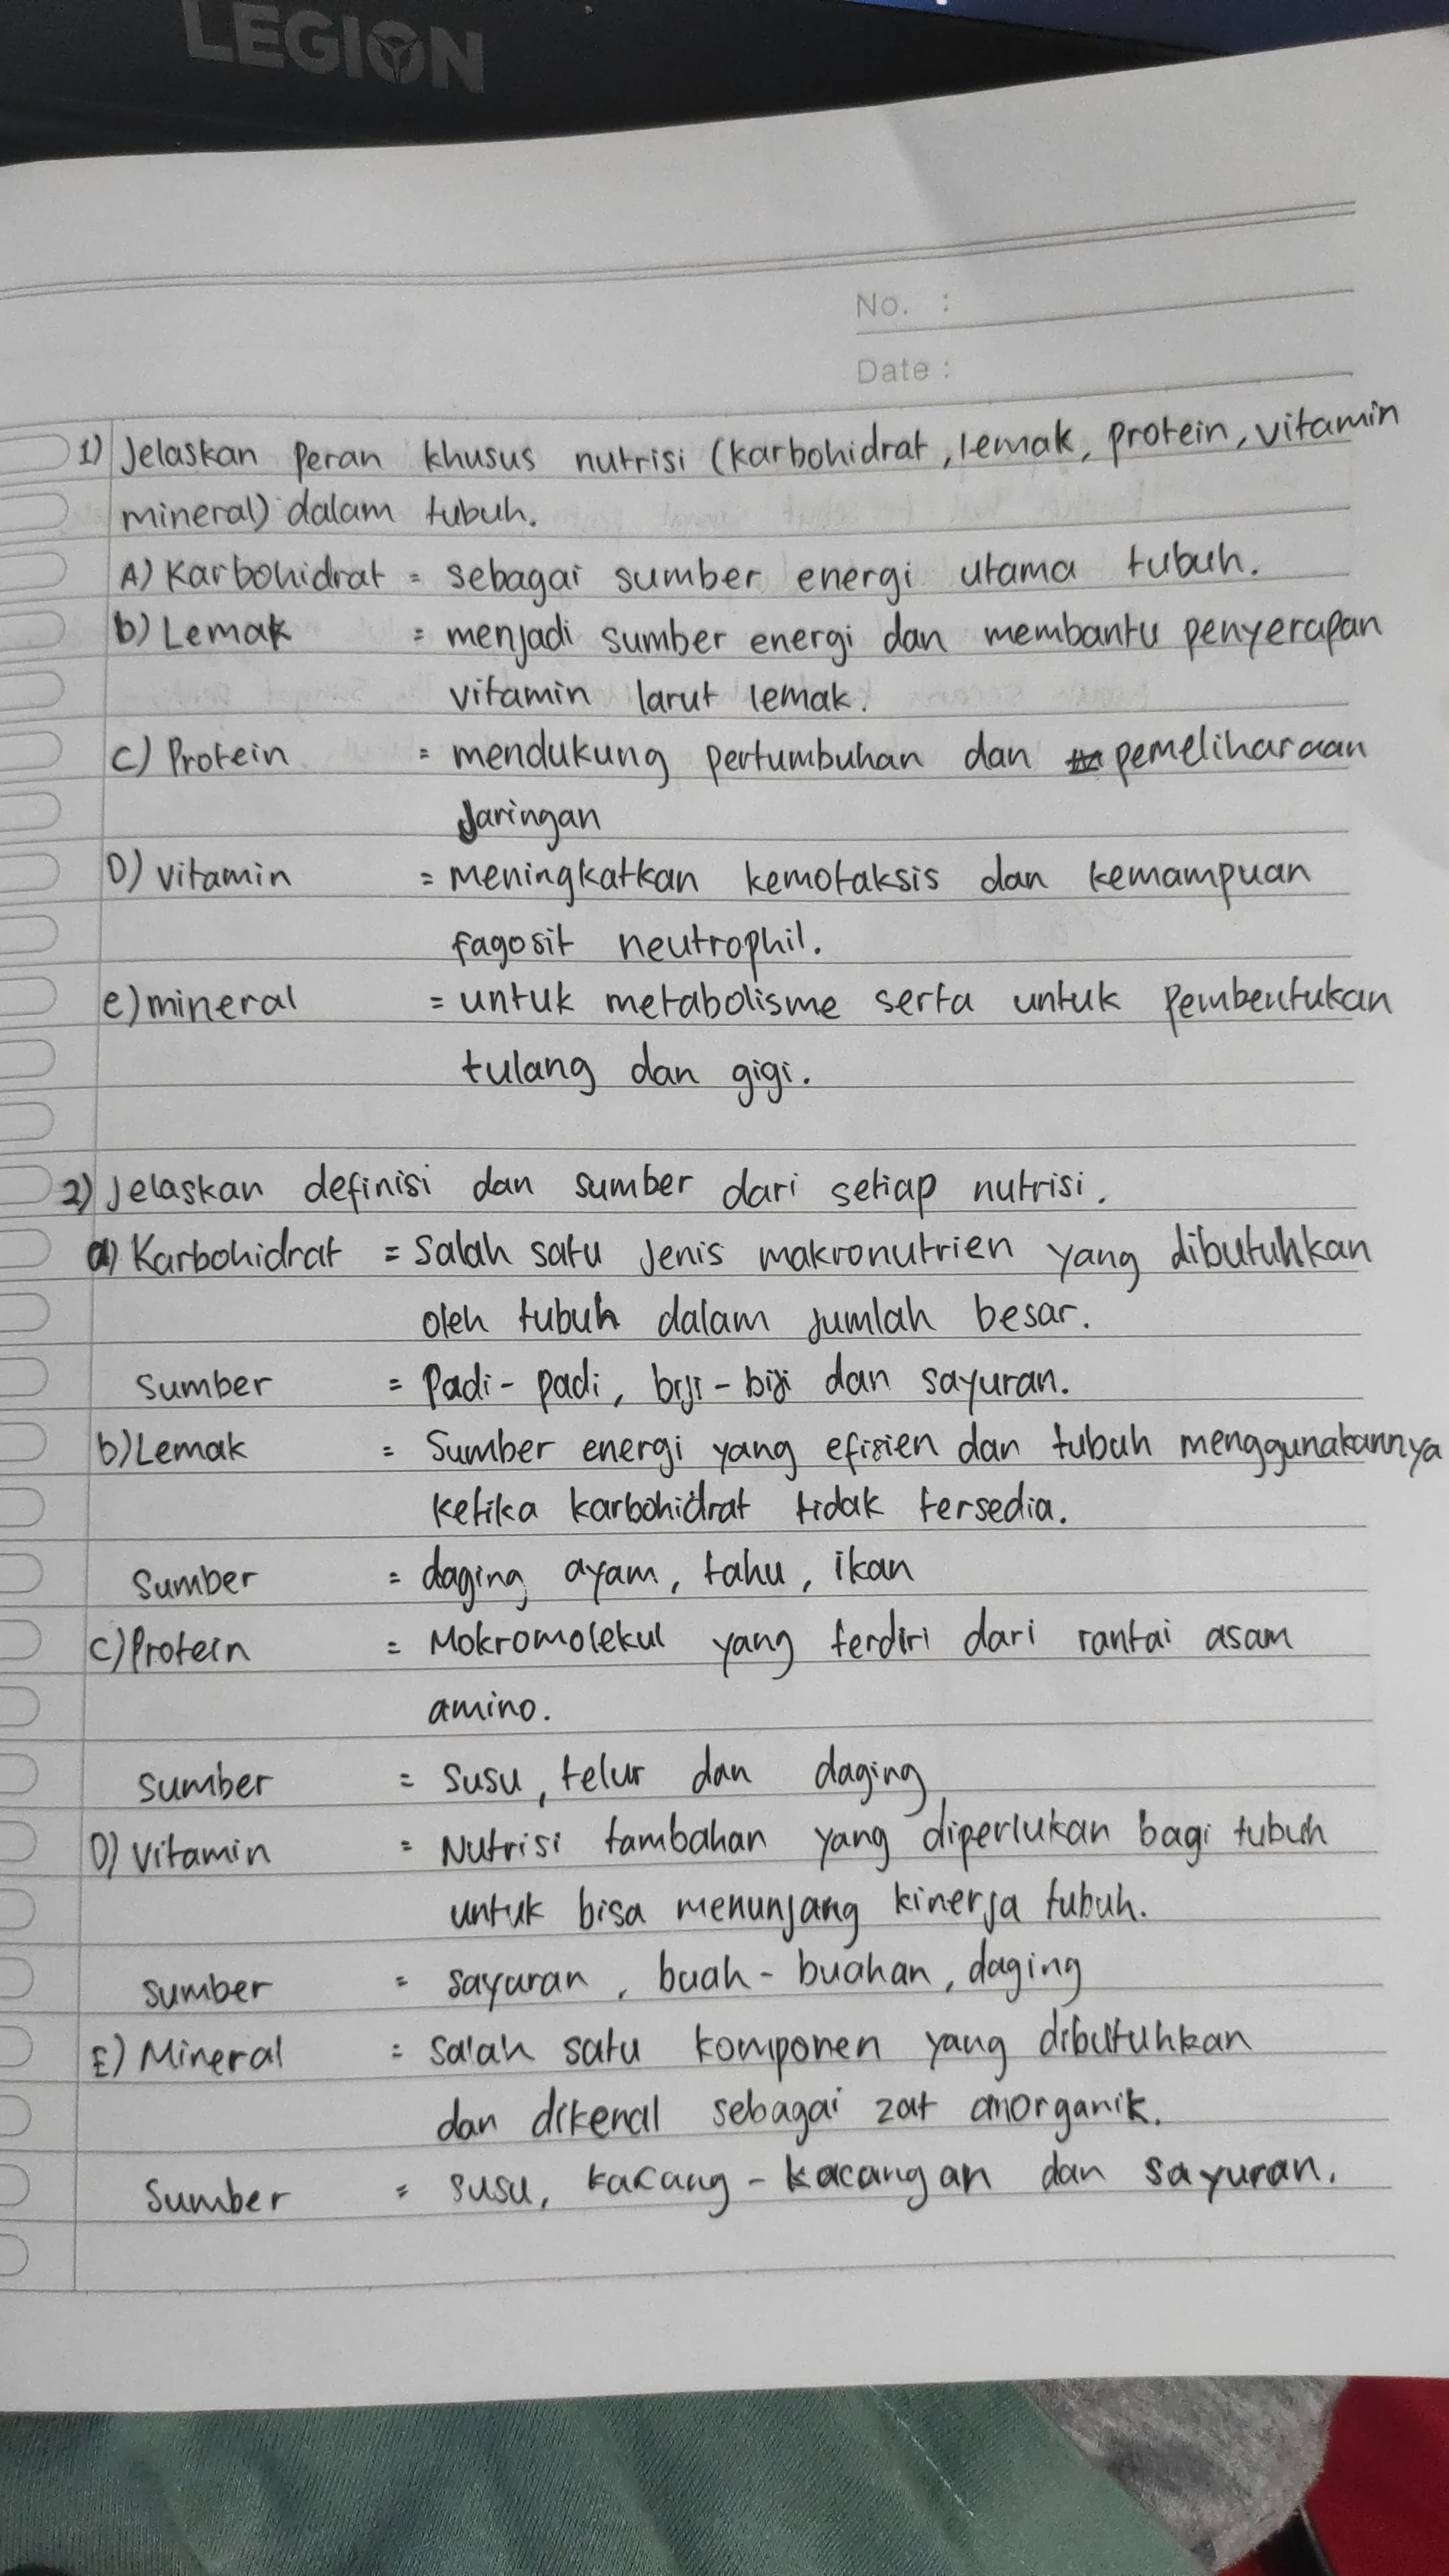 LEGION
No. :
Date :
1) Jelaskan peran khusus nutrisi (karbohidrat, lemak, protein, vitamin
mineral) dalam tubuh.
A) Karbohidrat = sebagai sumber energi utama tubuh.
b) Lemak = menjadi sumber energi dan membantu penyerapan
vitamin larut lemak.
C) Protein = mendukung pertumbuhan dan pemeliharaan
Jaringan
D) vitamin = meningkatkan kemotaksis dan kemampuan
fagosit neutrophil.
e) mineral = untuk metabolisme serta untuk pembentukan
tulang dan gigi.
2) Jelaskan definisi dan sumber dari setiap nutrisi.
a) Karbohidrat = Salah satu Jenis makronutrien yang dibutuhkan
oleh tubuh dalam jumlah besar.
Sumber = Padi - padi, biji - biji dan sayuran.
b) Lemak = Sumber energi yang efisien dan tubuh menggunakannya
ketika karbohidrat tidak tersedia.
Sumber = daging ayam, tahu, ikan
C) Protein = Mokromolekul yang terdiri dari rantai asam
amino.
sumber = susu, telur dan daging
D) Vitamin = Nutrisi tambahan yang diperlukan bagi tubuh
untuk bisa menunjang kinerja tubuh.
sumber = sayuran, buah - buahan, daging
E) Mineral = Salah satu komponen yang dibutuhkan
dan dikenal sebagai zat anorganik.
Sumber = susu, kacang - kacangan dan sayuran.